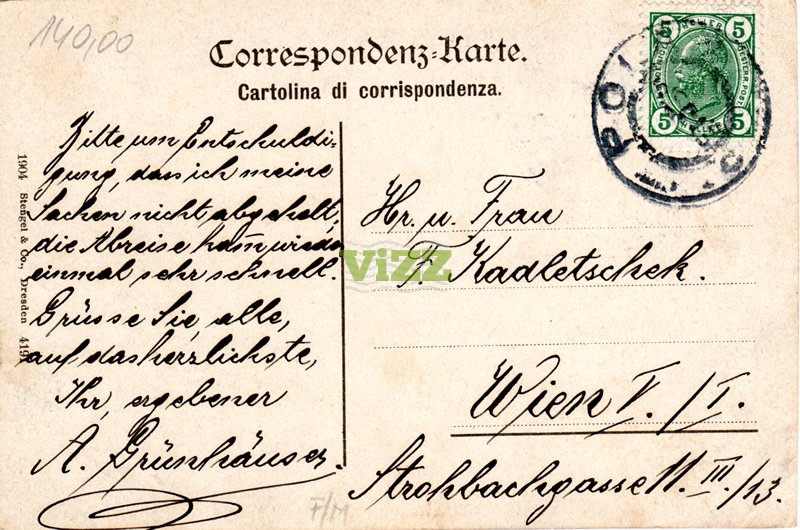 140,00
Correspondenz-Karte.
Cartolina di corrispondenza.
5 5
5 5
POL
Bitte um Entschuldi-
gung, dass ich meine
Sachen nicht abgeholt,
die Abreise kam wieder
einmal sehr schnell.
Grüsse Sie, alle,
auf das herzlichste,
Ihr, ergebener
A. Grünhäuser.
Hr. u. Frau
F. Kadletschek.
Wien V. / I.
Strohbachgasse 11. III / 13.
1904 Stengel & Co., Dresden 4191
ViZZ
F/M